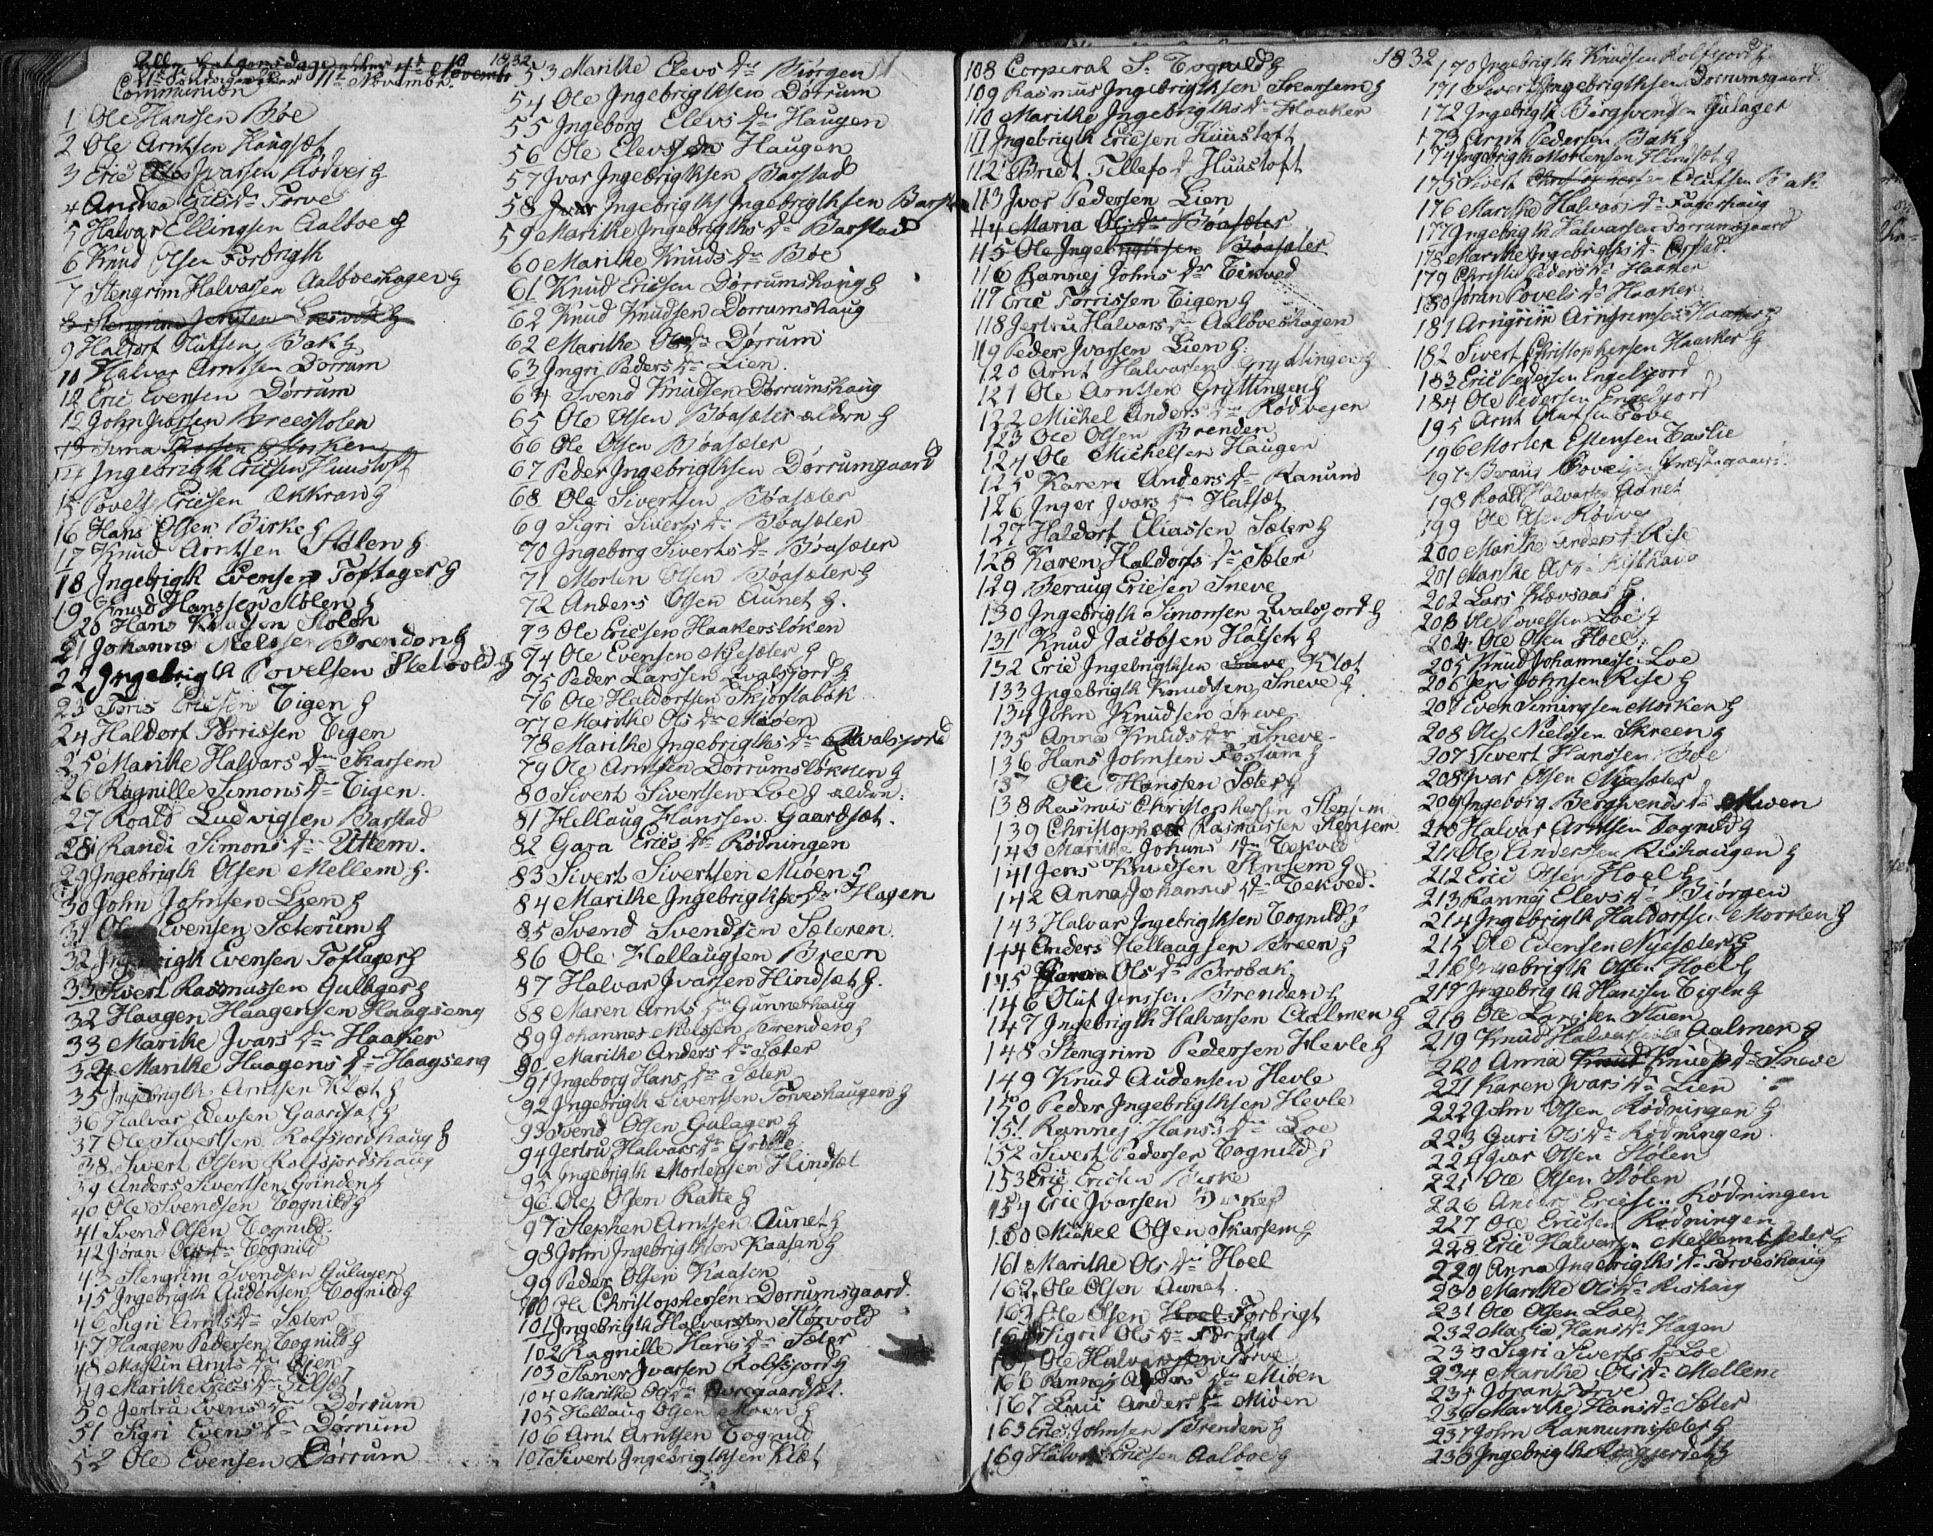 1832
Communion 11te Novembr.
1 Ole Hanssen Bøe
2 Ole Arntsen
3 Eric Ivarsen Rødvei
4 Andrea Torve
5 Halvar Ellingsen Aalboe
6 Knud Olsen Forbrigth
7 Stengrim Halvarsen Aalboeshagen
8 Stengrim Jensen
9 Haldorf Olufsen Bak
10 Halvar Arntsen Dørrum
12 Eric Evensen Dørrum
12 John Breestolen
13
14 Ingebrigth Ericsen Huustoft
15 Povel Ericsen
16 Hans Olsen Birke
17 Knud Arntsen Stølen
18 Ingebrigth Evensen Toftager
19 Knud Hanssen Stølen
20 Hans Knudsen Stølen
21 Johannes Nelssen Brenden
22 Ingebrigth Povelsen
23 Toris Ericsen Tigen
24 Haldorf Torrissen Tigen
25 Marithe Halvars Dtr Skarsem
26 Ragnille Simons Dtr Tigen
27 Roald Ludvigsen Barstad
28 Randi Simons Dtr Uttem.
29 Ingebrigth Olsen Mellem
30 John Johnsen Lien
31 Ole Evensen Sæterum
32 Ingebrigth Evensen Toftager
33 Sivert Rasmussen Gulager
32 Haagen Haagensen Haagseng
33 Marithe Ivars Dtr Haaker
34 Marithe Haagens Dtr Haagseng
35 Ingebrigth Arntsen Klæt
36 Halvar Elevsen Gaardsæt
37 Ole Sivertsen Rolfsjordshaug
38 Sivert Olsen Rolfsjordshaug
39 Anders Sivertsen Grinden
40 Ole Svendsen Tognild
41 Svend Olsen Tognild
42 Jøran Ols Dtr Tognild
43 Stengrim Svendsen Gulager
45 Ingebrigth Audensen Tognild
46 Sigri Arnts Dtr Sæter
47 Haagen Pedersen Tognild
48 Arnts Dtr
49 Marithe Erics Dtr
50 Jertru Evens Dtr Dørrum
51 Sigri Evens Dtr Dørrum
52 Ole Evensen Dørrum
53 Marithe Elevs Dtr Biørgen
54 Ole Ingebrigthsen Dørrum
55 Ingeborg Elevs Dtr Haugen
56 Ole Elevsen Haugen
57 Ivar Ingebrigthsen Barstad
58 Ingebrigth Ingebrigthsen Barstad
59 Marithe Ingebrigths Dtr Barstad
60 Marithe Knuds Dtr Bøe
61 Knud Ericsen Dørrumshaug
62 Knud Knudsen Dørrumshaug
62 Marithe Ols Dtr Dørrum
63 Ingri Peders Dtr Lien
64 Svend Knudsen Dørrumshaug
65 Ole Olsen Bøasæter ældre
66 Ole Olsen Bøasæter
67 Peder Ingebrigthsen Dørrumgaard
68 Ole Sivertsen Bøasæter
69 Sigri Siverts Dtr Bøasæter
70 Ingeborg Siverts Dtr Bøasæter
71 Morten Olsen Bøasæter
72 Anders Olsen Aunet
73 Ole Ericsen Haakersløken
74 Ole Evensen Nyesæter
75 Peder Larssen Hvalsjord
76 Ole Haldorfsen
77 Marithe Ols Dtr Møen
78 Marithe Ingebrigths Dtr Hvalsjord
79 Ole Arntsen Dørrumsløkken
80 Sivert Sivertsen Loe ældre
81 Hellaug Hanssen Gaardsæt
82 Gara Erics Dtr Rødningen
83 Sivert Sivertsen Miøen
84 Marithe Ingebrigths Dtr Hagen
85 Svend Svendsen Sæteren
86 Ole Hellaugsen Breen
87 Halvar Ivarsen Hindsæt
88 Maren Arnts Dtr Gunnerhaug
89 Johannes Nelssen Brenden
90 Marithe Anders Dtr Sæter
91 Ingeborg Hans Dtr Sæter
92 Ingebrigth Sivertsen Torveshaugen
93 Svend Olsen Gulager
94 Jertru Halvars Dtr
95 Ingebrigth Mortensen Hindsæt
96 Ole Olsen Ratte
97 Stephen Arntsen Aunet
98 John Ingebrigthsen Kaasan
99 Peder Olsen Kaasen
100 Ole Christophersen Dørrumsgaard
101 Ingebrigth Halvarsen Størvold
102 Ragnille Hans Dtr Sæter
103 Stener Ivarsen Rolfsjord
104 Marithe Ols Dtr
105 Hellaug Olsen Moen
106 Arnt Arntsen Tognild
107 Sivert Ingebrigthsen Klæt
1832
108 Corporal S. Tognild
109 Rasmus Ingebrigthsen Skarsem
110 Marithe Ingebrigths Dtr Haaker
111 Ingebrigth Ericsen Huustoft
112 Brit Tillefs D Huustoft
113 Ivor Pedersen Lien
44 Maria Ols Dtr Bøasæter
45 Ole Ingebrigthsen Bøasæter
116 Rannej Johns Dtr Tekved
117 Eric Torrissen Tigen
118 Jertru Halvars Dtr Aalboeshagen
119 Peder Ivarsen Lien
120 Arnt Halvarsen Gryttingen
121 Ole Arntsen Gryttingen
122 Michel Anders Dtr Rødvejen
123 Ole Olsen Brenden
124 Ole Michelsen Haugen
125 Karen Anders Dtr Ranum
126 Inger Ivars Dtr Halsæt
127 Haldorf Eliassen Sæter
128 Karen Haldorfs Dtr Sæter
129 Beraug Ericsen Sneve
130 Ingebrigth Simonsen Hvalsjord
131 Knud Jacobsen Halset
132 Eric Ingebrigthsen Sneve Klæt
133 Ingebrigth Knudsen Sneve
134 John Knudsen Sneve
135 Anna Knuds Dtr Sneve
136 Hans Johnsen Fossum
137 Ole Hanssen Sæter
138 Rasmus Christophersen Stensem
139 Christopher Rasmussen Stensem
140 Marithe Johans Dtr Tekved
141 Jens Knudsen Stensem
142 Anna Johannes Dtr Tekved
143 Halvar Ingebrigthsen Tognild
144 Anders Hellaugsen Breen
145 Ols Dtr Brobak
146 Oluf Jenssen Brenden
147 Ingebrigth Halvarsen Aalmen
148 Stengrim Pedersen Hevle
149 Knud Audensen Hevle
150 Peder Ingebrigthsen Hevle
151 Rannej Hans Dtr Loe
152 Sivert Pedersen Tognild
153 Eric Ericsen Birke
154 Eric Ivarsen
160 Mickel Olsen Skarsem
161 Marithe Ols Dtr Hoel
162 Ole Olsen Aunet
163 Ole Olsen Hoel Forbrigt
Sigri Ols Dtr Forbrigt
Ole Halvarsen
166 Rannej Anders Dtr Miøen
167 Anders Dtr Miøen
163 Eric Johnsen Brenden
169 Halvar Ericsen Aalboe
170 Ingebrigth Knudsen Rolfsjord
171 Sivert Ingebrigthsen Dørrumsgaard
172 Ingebrigth Bergsvendsen Gulager
173 Arnt Pedersen Bak
174 Ingebrigth Mortensen Hindsæt
175 Sivert Olufsen Bak
176 Marithe Halvars Dtr Fagerhaug
177 Ingebrigth Halvarsen Dørrumsgaard
178 Marithe Ingebrigths Dtr
179 Christi Peders Dtr Haaker
180 Jøran Povels Dtr Haaker
181 Arngrim Arngrimsen Haaker
182 Sivert Christophersen Haaker
183 Eric Pedersen Engelsjord
184 Ole Pedersen Engelsjord
195 Arnt Olufsen
196 Morten Estensen
197 Beraug Povelsen
198 Roald Halvarsen Aunet
199 Ole Olsen
200 Marithe Anders Dtr Rise
201 Marithe Ols Dtr
202 Lars
203 Ole Povelsen Loe
204 Ole Olsen Hoel
205 Knud Johannessen Loe
206 Jens Johnsen Rise
207 Even Simingsen Morken
208 Ole Nielsen Skreen
207 Sivert Hanssen Bøe
208 Ivar Olsen Nyesæter
209 Ingeborg Bergsvends Dtr Miøen
210 Halvar Arntsen Tognild
211 Ole Anderssen Rishaugen
212 Eric Olsen Hoel
213 Rannej Elevs Dtr Biørgen
214 Ingebrigth Haldorfsen Morken
215 Ole Evensen Nyesæter
216 Ingebrigth Olsen Hoel
217 Ingebrigth Hanssen Tigen
218 Ole Larssen
219 Knud Halvarsen Aalmen
220 Anna Knud Knuds Dtr Sneve
221 Karen Ivars Dtr Lien
222 John Olsen Rødningen
223 Guri Ols Dtr Rødningen
224 Ivar Olsen Stølen
225 Ole Olsen Stølen
226 Anders Ericsen Rødningen
227 Ole Ericsen Rødningen
228 Eric Halvarsen Mellemsæter
229 Anna Ingebrigths Dtr Torveshaug
230 Marithe Ols Dtr Rishaug
231 Ole Olsen Loe
232 Maria Hans Dtr Hagen
233 Sigri Siverts Dtr Loe
234 Marithe Ols Dtr Mellem
235 Jøran Torve
236 Marithe Hans Dtr Sæter
237 John Rannumsæter
238 Ingebrigth